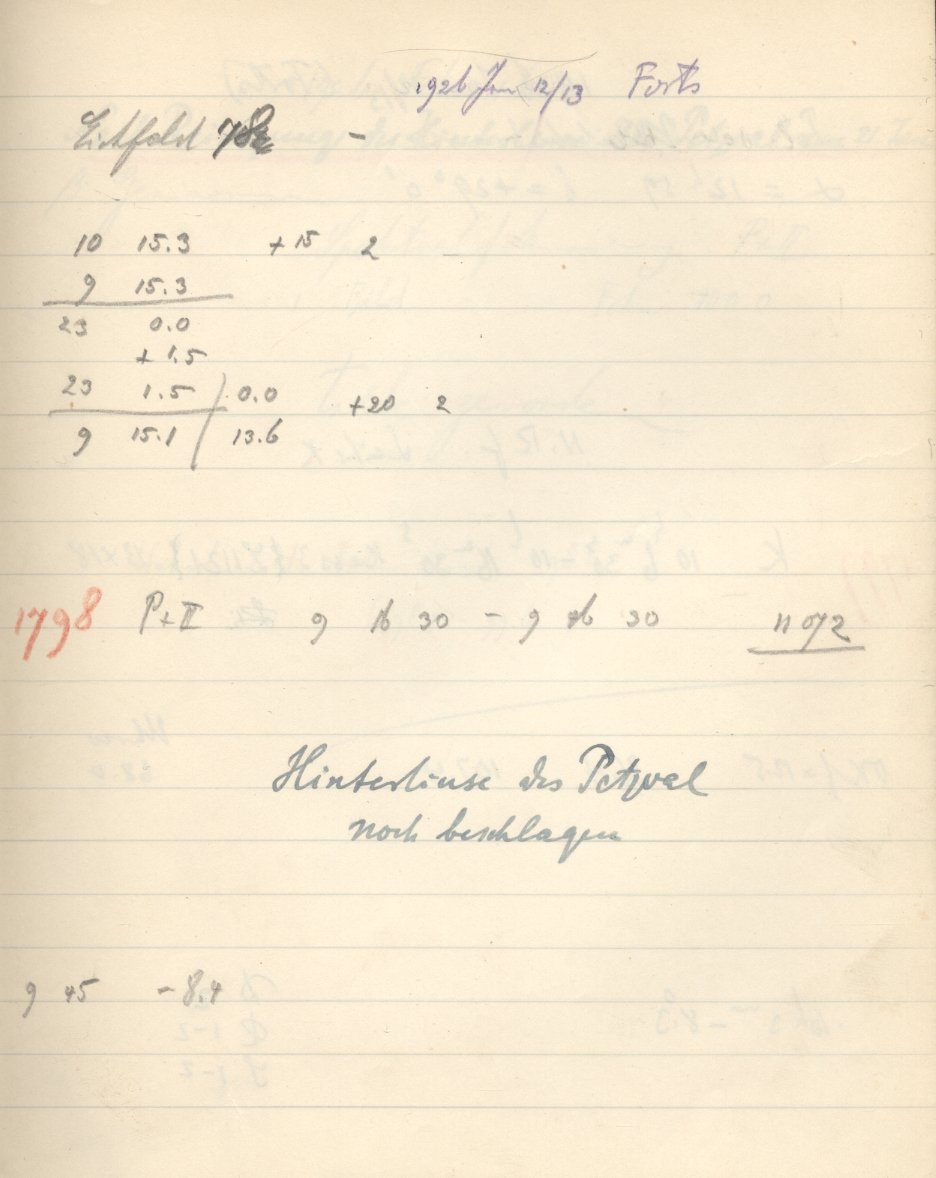 1926 Jan 12/13 Forts
Eichfeld 78a –
10 15.3 +15 2
9 15.3
23 0.0
+ 1.5
23 1.5 | 0.0 +20 2
9 15.1 | 13.6
1798 P+II 9 16 30 – 9 46 30 11 072
Hinterlinse des Petzval
noch beschlagen
9 45 – 8.4